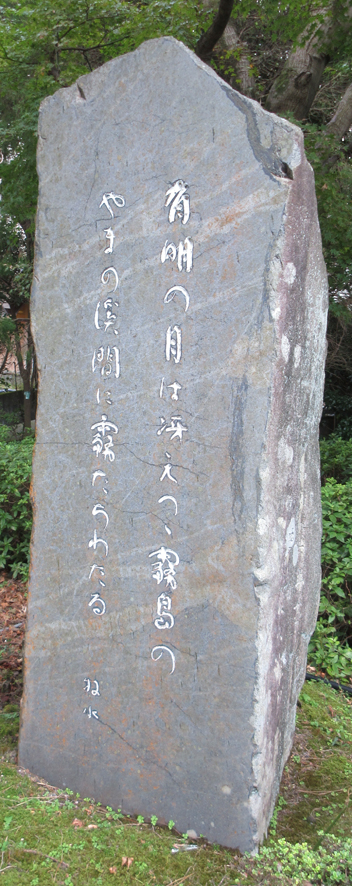 有明の月は冴えつゝ霧島の
やまの溪間に霧たちわたる
牧水